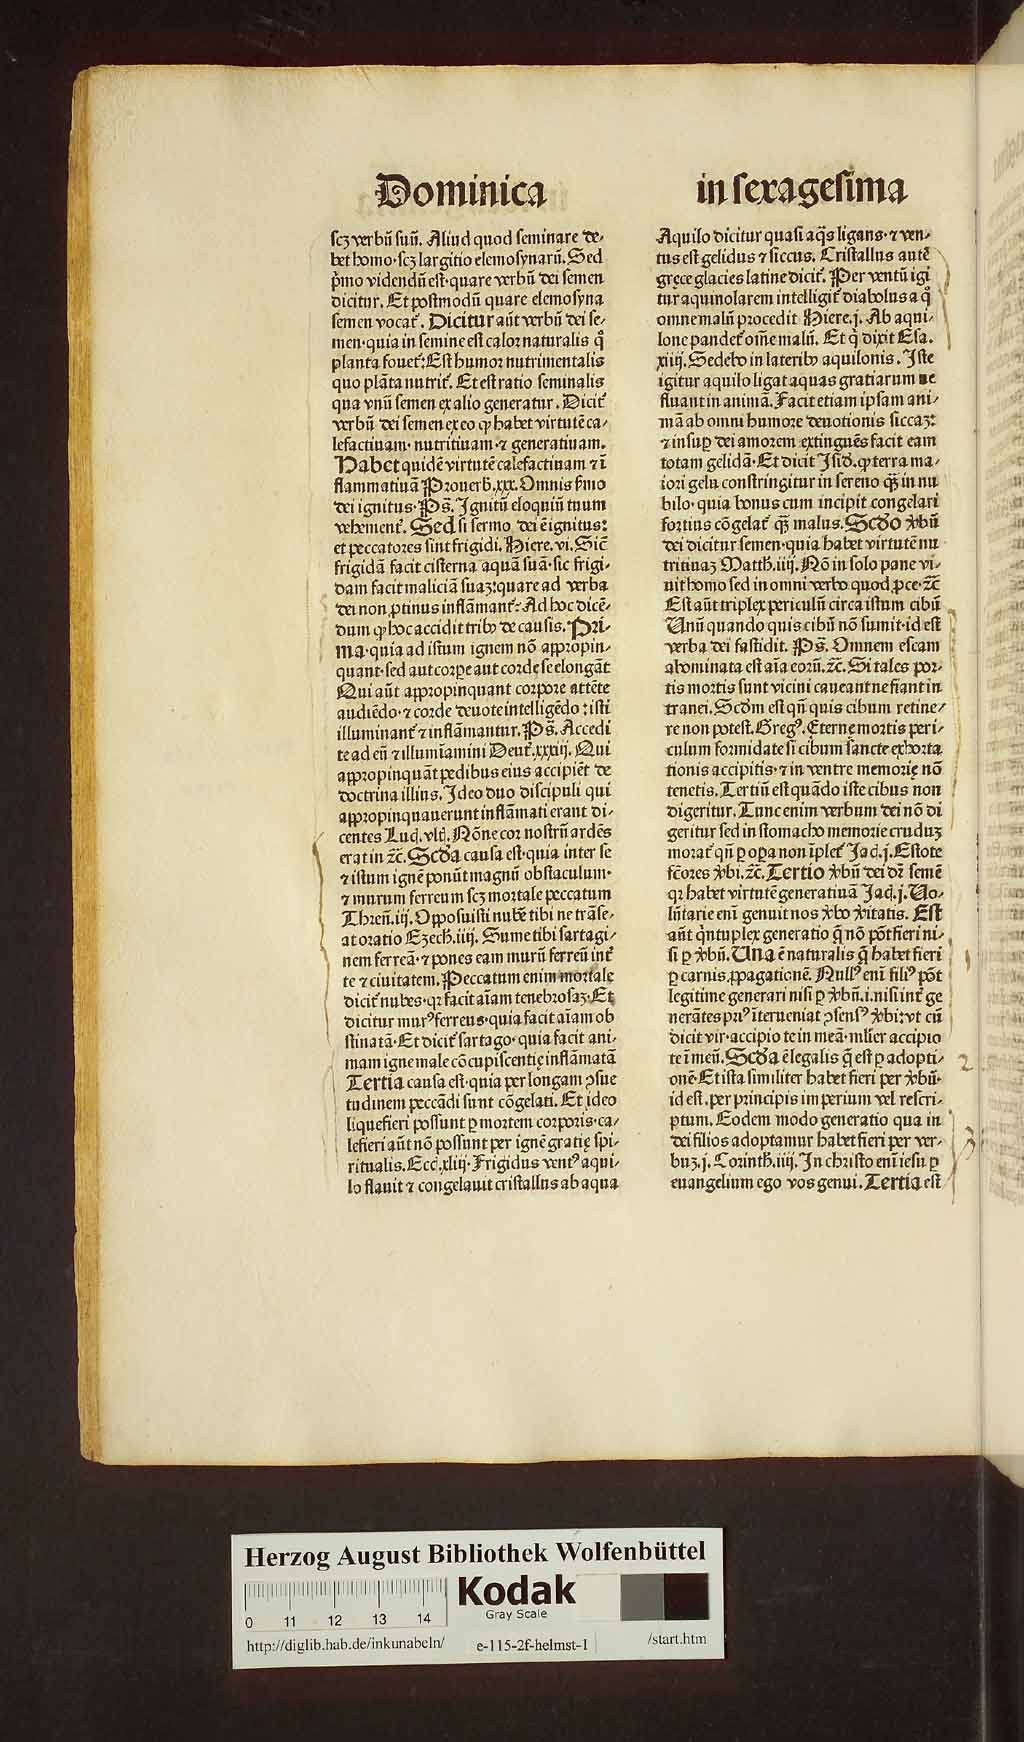 Dominica
in sexagesima
scꝫ verbū suū. Aliud quod seminare de-
bet homo·scꝫ largitio elemosynarū. Sed
p̄mo videndū est·quare verbū dei semen
dicitur. Et postmodū quare elemosyna
semen vocat᷑. Dicitur aūt verbū dei se-
men·quia in semine est calor naturalis q͛
planta fouet᷑: Est humor nutrimentalis
quo plāta nutrit᷑. Et est ratio seminalis
qua vnū semen ex alio generatur. Dicit᷑
verbū dei semen ex eo ꝙ habet virtutē ca-
lefactiuam·nutritiuam·⁊ generatiuam.
Habet quidē virtutē calefactiuam ⁊ ī
flammatiuā Prouerb̄.xxx. Omnis ẜmo
dei ignitus·Ps̄. Ignitū eloquiū tuum
vehement᷑. Sed si sermo dei ē ignitus:
et peccatores sint frigidi. Hiere. vi. Sic̄
frigidā facit cisterna aquā suā·sic frigi-
dam facit maliciā suaꝫ:quare ad verba
dei non ꝓtinus inflāmant᷑: Ad hoc dicē-
dum ꝙ hoc accidit tribꝰ de causis. Pri-
ma·quia ad istum ignem nō appropin-
quant·sed aut corꝑe aut corde se elongāt
Qui aūt appropinquant corpore attēte
audiēdo·⁊ corde deuote intelligēdo: isti
illuminant᷑ ⁊ inflāmantur. Ps̄. Accedi
te ad eū ⁊ illumīamini Deut᷑.xxxiij. Qui
appropinquāt pedibus eius accipiēt de
doctrina illius. Ideo duo discipuli qui
appropinquauerunt inflāmati erant di-
centes Luc̄.vlt̄. Nōne cor nostrū ardēs
erat in ⁊c̄. Scd̄a causa est·quia inter se
⁊ istum ignē ponūt magnū obstaculum·
⁊ murum ferreum scꝫ mortale peccatum
Thren̄. iij. Opposuisti nubē tibi ne trāse-
at oratio Ezech̄.iiij. Sume tibi sartagi-
nem ferreā·⁊ pones eam murū ferreū int᷑
te ⁊ ciuitatem. Peccatum enim mortale
dicit᷑ nubes·qꝛ facit aīam tenebrosaꝫ·Et
dicitur murꝰ ferreus·quia facit aīam ob
stinatā·Et dicit᷑ sartago·quia facit ani-
mam igne male cōcupiscentię inflāmatā
Tertia causa est·quia per longam ꝯsue
tudinem peccādi sunt cōgelati. Et ideo
liquefieri possunt ꝑ mortem corporis·ca-
lefieri aūt nō possunt per ignē gratię spi-
ritualis. Ecc̄.xliij·Frigidus ventꝰ aqui-
lo flauit ⁊ congelauit cristallus ab aqua
Aquilo dicitur quasi aq̄s ligans·⁊ ven-
tus est gelidus ⁊ siccus. Cristallus autē
gręce glacies latine dicit᷑. Per ventū igi
tur aquinolarem intelligit᷑ diabolus a q͛
omne malū procedit Hiere.j. Ab aqui-
lone pandet᷑ om̄e malū. Et q̇ dixit Esa.
xiiij. Sedebo in lateribꝰ aquilonis. Iste
igitur aquilo ligat aquas gratiarum ne
fluant in animā. Facit etiam ipsam ani-
mā ab omni humore deuotionis siccaꝫ:
⁊ insuꝑ dei amorem extinguēs facit eam
totam gelidā·Et dicit Isid̄. ꝙ terra ma-
iori gelu constringitur in sereno qȝ̄ in nu
bilo·quia bonus cum incipit congelari
fortius cōgelat᷑ qȝ̄ malus. Scd̄o v̓bū
dei dicitur semen·quia habet virtutē nu
tritiuaꝫ Matth̄.iiij. Nō in solo pane vi-
uit homo sed in omni verbo quod ꝓce·⁊c̄
Est aūt triplex periculū circa istum cibū
Unū quando quis cibū nō sumit·id est
verba dei fastidit. Ps̄. Omnem escam
abominata est aīa eorū.⁊c̄. Si tales por-
tis mortis sunt vicini caueant ne fiant in
tranei. Scd̄m est qn̄ quis cibum retine-
re non potest. Gregꝰ. Eterne mortis peri-
culum formidate si cibum sancte exhorta
tionis accipitis·⁊ in ventre memorię nō
tenetis. Tertiū est quādo iste cibus non
digeritur. Tunc enim verbum dei nō di
geritur sed in stomacho memorie cruduꝫ
morat᷑ qn̄ ꝑ oꝑa non īplet᷑ Jac̄.j. Estote
fc̄ores v̓bi.⁊c̄. Tertio v̓bū dei dr̄ semē
qꝛ habet virtutē generatiuā Jac̄.j. Uo-
lūtarie enī genuit nos v̓bo v̓itatis. Est
aūt q̇ntuplex generatio q̄ nō pōt fieri ni-
si ꝑ v̓bū. Una ē naturalis q̄ habet fieri
ꝑ carnis ꝓpagationē. Nullꝰ enī filiꝰ pōt
legitime generari nisi ꝑ v̓bū.i.nisi int᷑ ge
nerātes priꝰ īterueniat ꝯsensꝰ v̓bi: vt cū
dicit vir·accipio te in meā·ml̄ier accipio
te ī meū. Scd̄a ē legalis q̄ est ꝑ adopti-
onē·Et ista similiter habet fieri per v̓bū·
id est.per principis imperium vel rescri-
ptum. Eodem modo generatio qua in
dei filios adoptamur habet fieri per ver-
buꝫ.j. Corinth̄.iiij. In christo enī iesu ꝑ
euangelium ego vos genui. Tertia est
2
Herzog August Bibliothek Wolfenbüttel
Kodak
Gray Scale
0 11 12 13 14
http://diglib.hab.de/inkunabeln/ e-115-2f-helmst-1 /start.htm